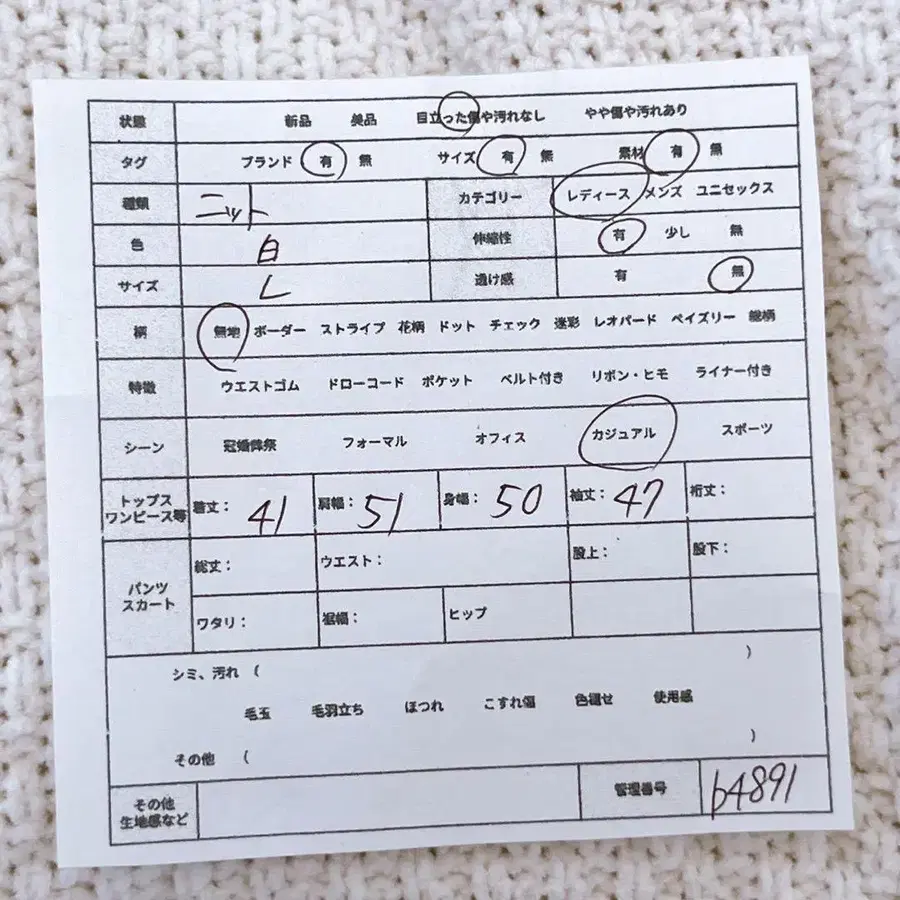 状態 新品 美品 目立った傷や汚れなし やや傷や汚れあり
タグ ブランド 有 無 サイズ 有 無 素材 有 無
種類 ニット カテゴリー レディース メンズ ユニセックス
色 白 伸縮性 有 少し 無
サイズ L 透け感 有 無
柄 無地 ボーダー ストライプ 花柄 ドット チェック 迷彩 レオパード ペイズリー 総柄
特徴 ウエストゴム ドローコード ポケット ベルト付き リボン・ヒモ ライナー付き
シーン 冠婚葬祭 フォーマル オフィス カジュアル スポーツ
トップス
ワンピース等 着丈： 41 肩幅： 51 身幅： 50 袖丈： 47 裄丈：
パンツ
スカート 総丈： ウエスト： 股上： 股下：
ワタリ： 裾幅： ヒップ
シミ、汚れ ( )
毛玉 毛羽立ち ほつれ こすれ傷 色褪せ 使用感
その他 ( )
その他
生地感など 管理番号 b4891